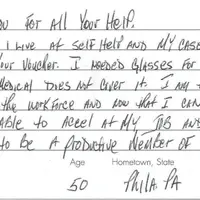 ou For All Your Help.
I Live at Self Help and my case
our Voucher. I needed Glasses for
Medical Does not Cover it. I am
the workforce and now that I can
able to Accel at my Job and
to be a Productive Member of
Age Hometown, State
50 Phila. PA